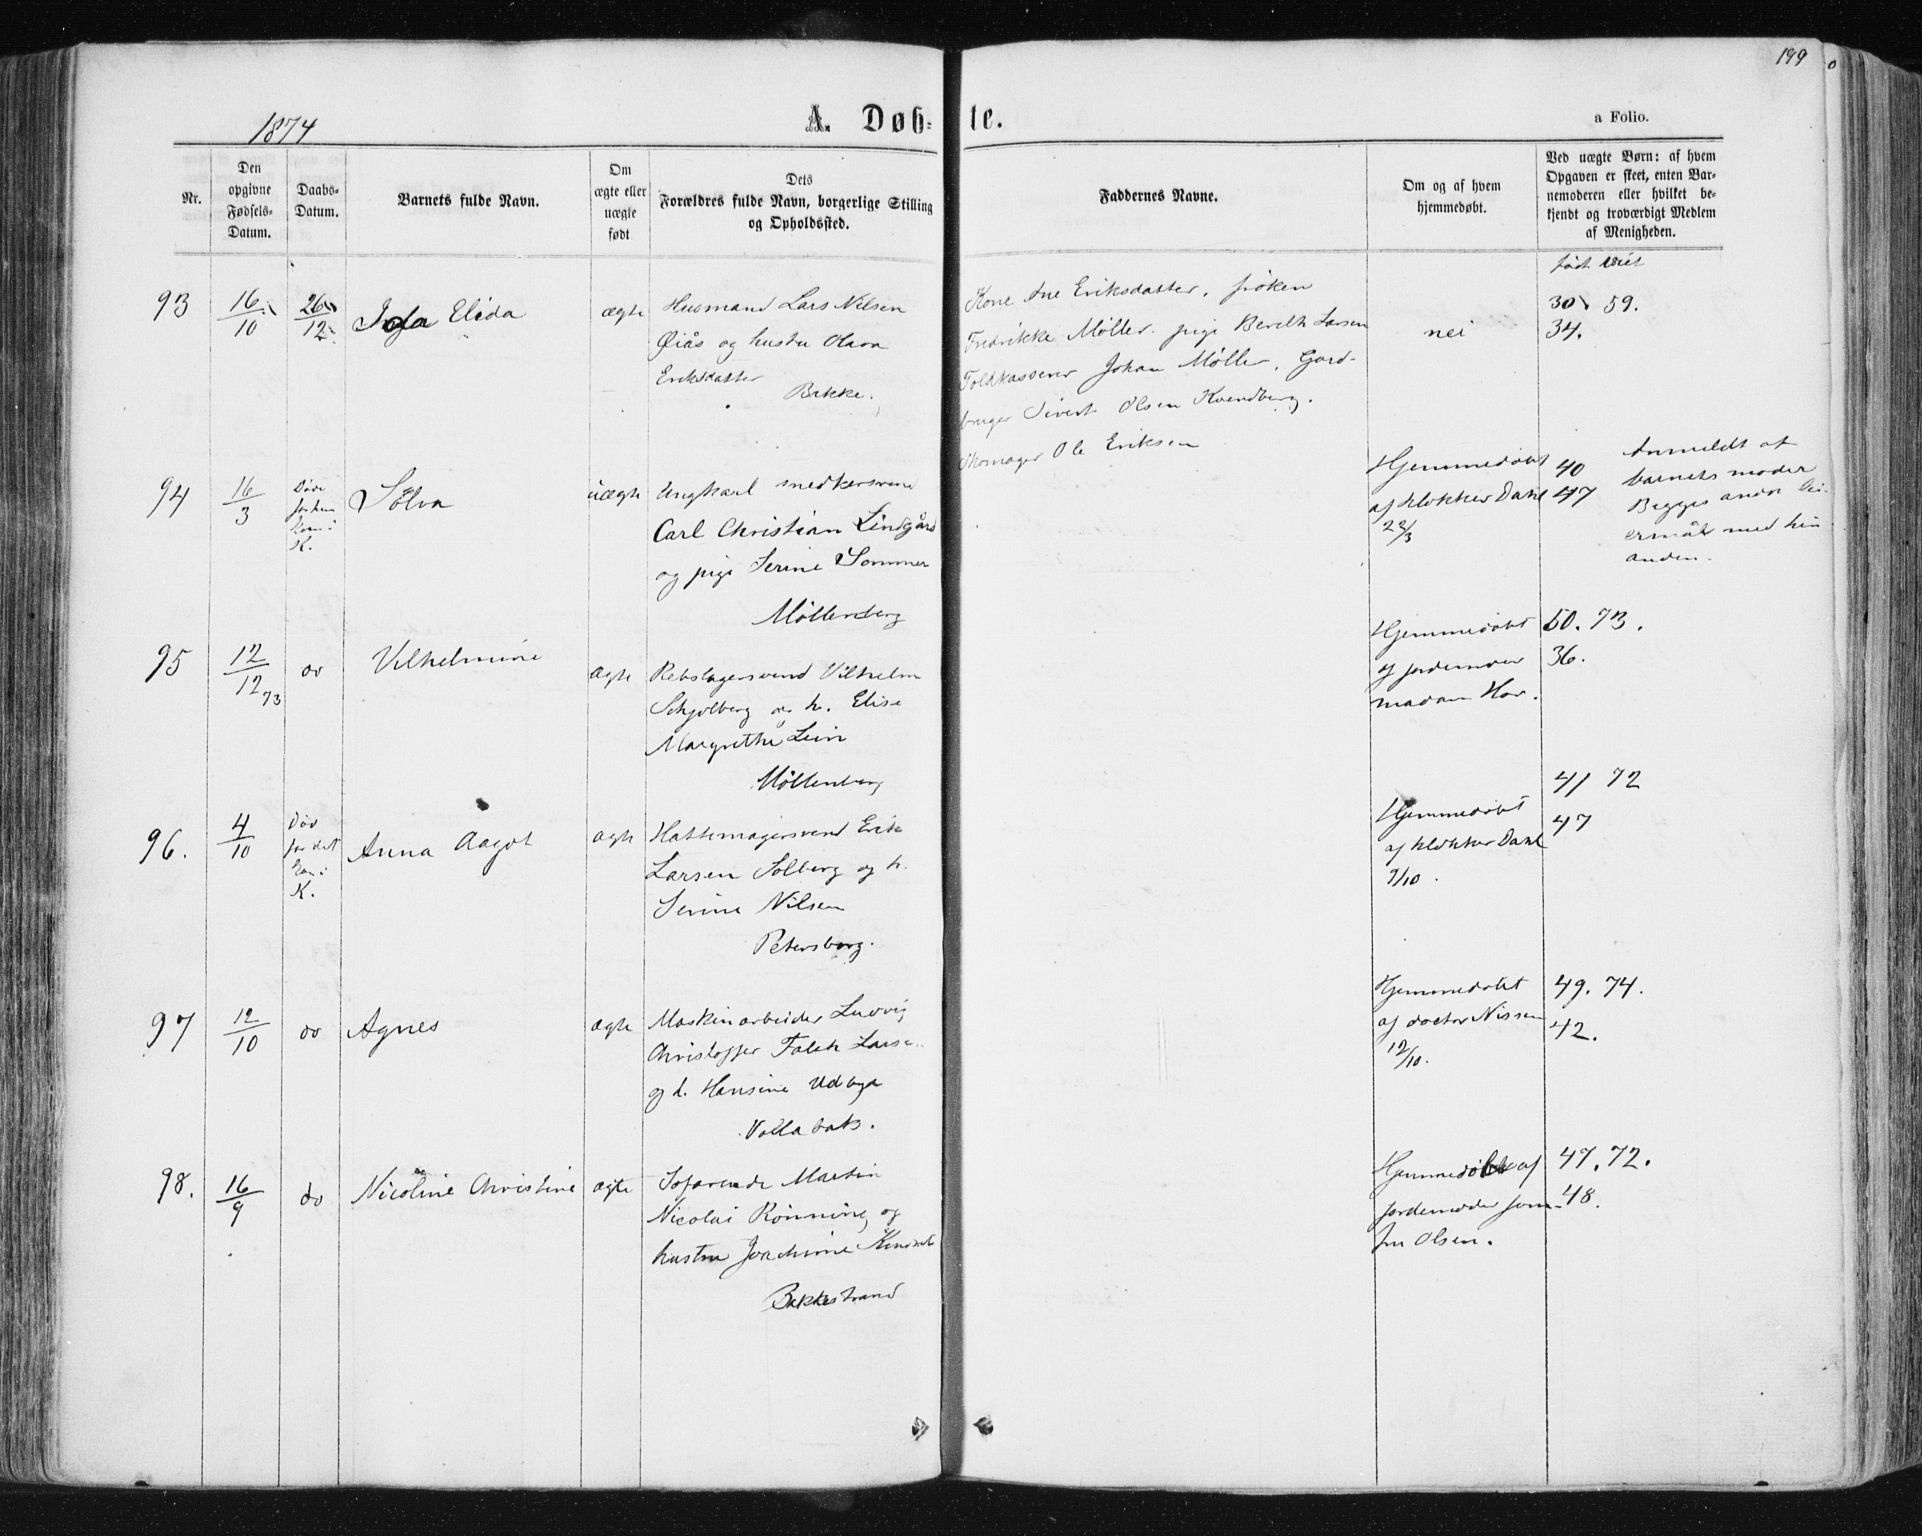 199
1874
A. Døbte.
a Folio.
Nr.
Den opgivne Fødsels-Datum.
Daabs-Datum.
Barnets fulde Navn.
Om ægte eller uægte født
Dets Forældres fulde Navn, borgerlige Stilling og Opholdssted.
Faddernes Navne.
Om og af hvem hjemmedøbt.
Ved uægte Børn: af hvem Opgaven er skeet, enten Barnemoderen eller hvilket bekjendt og troværdigt Medlem af Menigheden.
født viet
93
16/10
26/12
Elida
ægte
Husmand Lars Nilsen
Øiås og hustru Olava
Eriksdatter
Bakke.
Kone Ane Eriksdatter, frøken
Fredrikke Møller, pige Bereth Larsen
Toldkasserer Johan Møller, Gard-
bruger Sivert Olsen Kvendberg.
Skomager Ole Eriksen
nei
30 59.
34.
94
16/3
Døde
før den
kom i
K.
Sølva
uægte
Ungkarl snedkersvend
Carl Christian Lindgård
og pige Serine Sommer
Møllenberg
Hjemmedøbt
af klokker Dahl
22/3
40
47
Anmeldt af
barnets moder
Begges andet lei-
ermål med hin
anden.
95
12/12 73
do
Vilhelmine
ægte
Rebslagersvend Vilhelm
Schjølberg og h. Elise
Margrethe Lein
Møllenberg
Hjemmedøbt
af jordemoder
madam Hov.
50. 73.
36.
96.
4/10
Død
før det
kom i
K.
Anna Aagot
ægte
Hattemagersvend Erik
Larsen Solberg og h.
Serine Nilsen
Petersborg.
Hjemmedøbt
af klokker Dahl
9/10.
41 72
47
97
12/10
do
Agnes
ægte
Maskinarbeider Ludvig
Christoffer Falck Larse..
og h. Hansine Udbye
Vollabak.
Hjemmedøbt
af doctor Nissen
12/10.
49. 74.
42.
98.
16/9
do
Nicoline Christine
ægte
Søfarende Martin
Nicolai Rønning og
hustru Joachime
Bakkestrand
Hjemmedøbt af
jordemoder jom-
fru Olsen.
47. 72.
48.